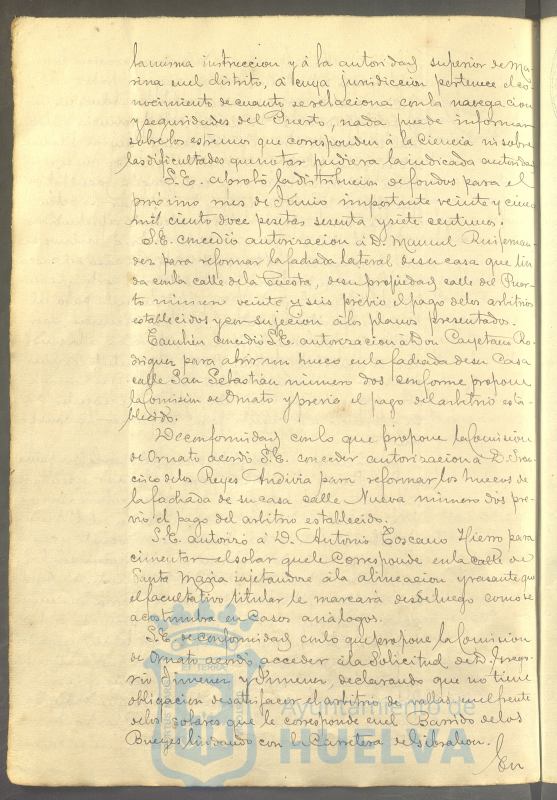 la misma instruccion y á la autoridad superior de Ma-
rina en el distrito, á cuya jurisdiccion pertenece el co-
nocimiento de cuanto se relaciona con la navegacion
y seguridades del Puerto, nada puede informar
sobre los estremos que corresponden á la Ciencia ni sobre
las dificultades que notar pudiera la indicada autoridad
S.E. aprobó la distribucion de fondos para el
próximo mes de Junio importante veinte y cinco
mil ciento doce pesetas sesenta y siete centimos.
S.E. concedió autorizacion á D. Manuel Ruifernan-
dez para reformar la fachada lateral de su casa que lin-
da con la calle de la Puerta, de su propiedad calle del Puer-
to numero veinte y seis previo el pago de los arbitrios
establecidos y con sujecion á los planos presentados.
Tambien concedió S.E. autorizacion á Don Cayetano Ro-
driguez para abrir un hueco en la fachada de su Casa
calle San Sebastián número dos conforme propone
la Comision de Ornato y previo el pago del arbitrio esta-
blecido.
De conformidad con lo que propone la Comision
de Ornato acordó S.E. conceder autorizacion á D. Fran-
cisco de los Reyes Andivia para reformar los huecos de
la fachada de su casa calle Nueva número dos pre-
vio el pago del arbitrio establecido.
S.E. autorizó á D. Antonio Toscano Hierro para
cimentar el solar que le corresponde en la calle de
Santa Maria sujetandose á la alineacion y rasante que
el facultativo titular le marcará desde luego como se
acostumbra en Casos análogos.
S.E. de conformidad con lo que propone la Comision
de Ornato acordó acceder á la solicitud de D. Grego-
rio Jimenez y Jimenez, declarando que no tiene
obligacion de satisfacer el arbitrio de vallas en el frente
de los solares que le corresponde en el Barrido de los
Bueyes lindando con la Carretera de Gibraleon.
En
Ayuntamiento de
HUELVA